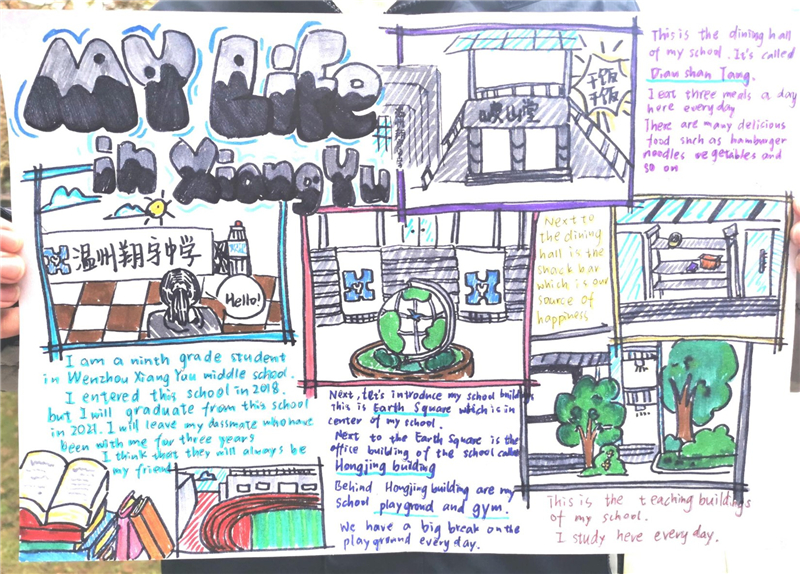 My Life
in XiangYu
干饭
干饭
This is the dining hall
of my school. It's called
shan Tang.
I eat three meals a day
here everyday
There are many delicious
food such as hamburger
noodles vegetables and
so on
温州翔宇中学
Hello!
Next to
the dining
hall is the
snack bar
which is our
source of
happiness
I am a ninth grade student
in Wenzhou Xiang You middle school.
I entered this school in 2018.
but I will graduate from this school
in 2021. I will leave my classmate who have
been with me for three years
I think that they will always be
my friend
Next, let's introduce my school buildings
This is Earth Square which is in
center of my school.
Next to the Earth Square is the
office building of the school called
Hongjing building
Behind Hongjing building are my
school playground and gym.
We have a big break on the
playground every day.
This is the teaching buildings
of my school.
I study here every day.